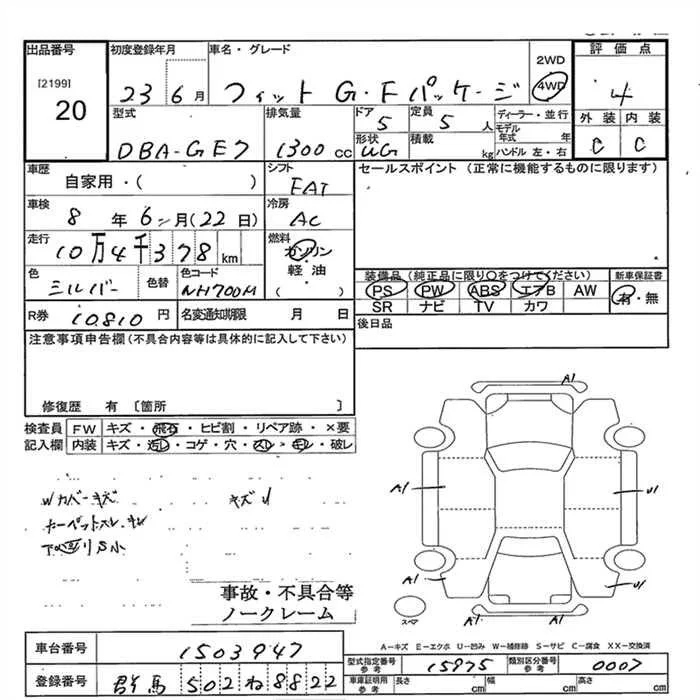 出品番号 初度登録年月 車名・グレード 2WD 評価点
[2199] 20 23 6月 フィット G・Fパッケージ 4WD 4
型式 排気量 ドア 定員 ディーラー・並行 外装 内装
DBA-GE7 1300cc 5 5人 モデル年式 年 C C
形状 積載 ハンドル 左・右
UG kg
車歴 シフト セールスポイント (正常に機能するものに限ります)
自家用・( ) FAT
車検 冷房
8年6月(22日) AC
走行 燃料
10万4千378km ガソリン
軽油
( )
色 色替 色コード 装備品 (純正品に限り○をつけてください) 新車保証書
シルバー NH700M PS PW ABS エアB AW 有・無
SR ナビ TV カワ
R券 10810円 名変通知期限 月 日 後日品
注意事項申告欄 (不具合内容等は具体的に記入して下さい)
修復歴 有 〔箇所 〕
検査員 FW キズ・飛石・ヒビ割・リペア跡・×要
記入欄 内装 キズ・汚レ・コゲ・穴・スレ・キレ・破レ
A1
Wカバーキズ キズU
カーペットスレ・キレ
A1 U1
A1 U1
A1
スペア
事故・不具合等
ノークレーム
A-キズ E-エクボ U-凹み W-補修跡 S-サビ C-腐食 XX-交換済
車台番号 1503947
型式指定番号 参考 15975 類別区分番号 参考 0007
登録番号 群馬 502 ね 8822
車庫証明用 参考 長さ cm 幅 cm 高さ cm